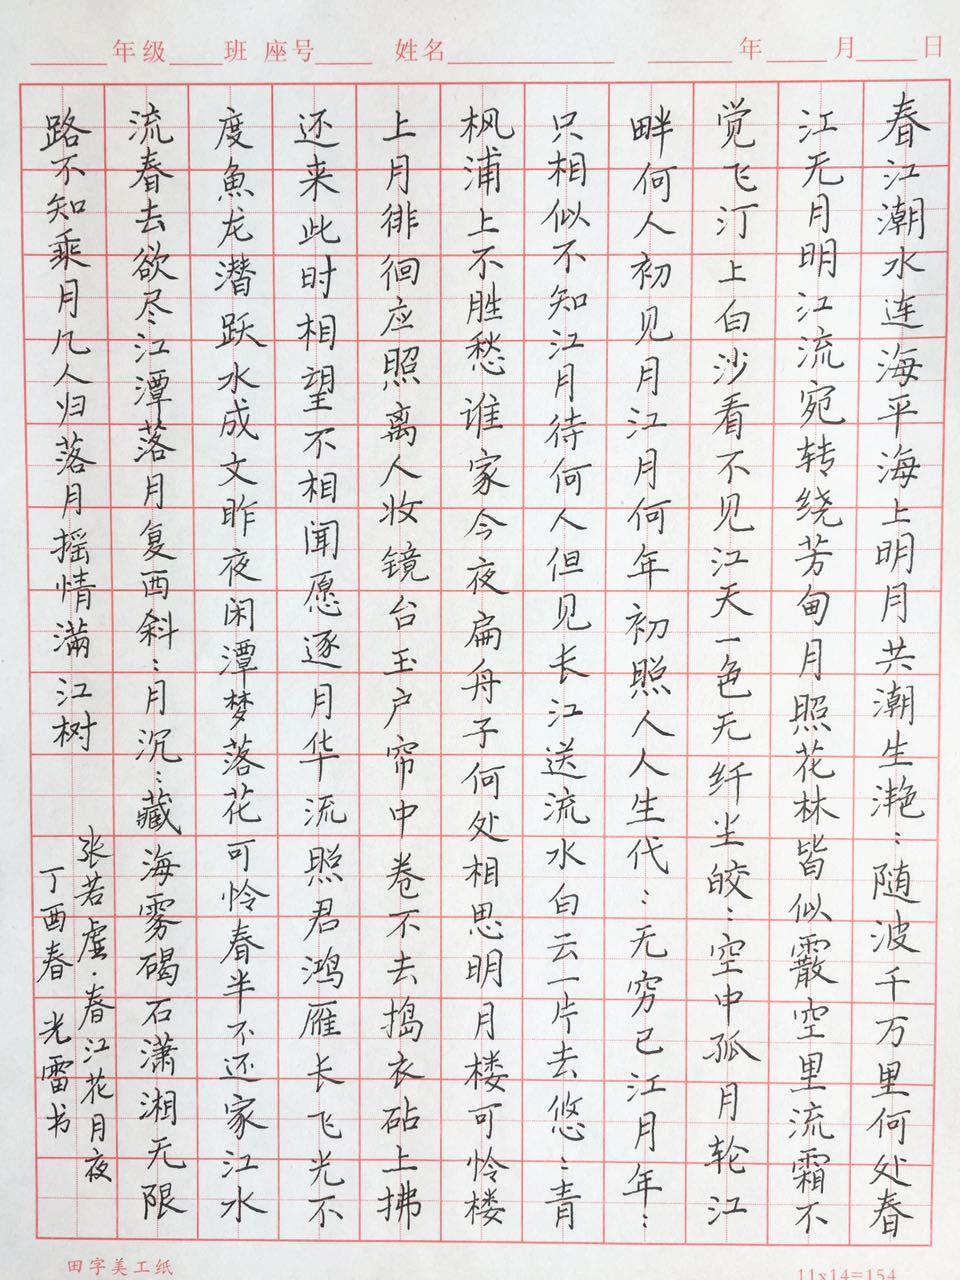 年级 班 座号 姓名 年 月 日
春江潮水连海平海上明月共潮生滟：随波千万里何处春
江无月明江流宛转绕芳甸月照花林皆似霰空里流霜不
觉飞汀上白沙看不见江天一色无纤尘皎：空中孤月轮江
畔何人初见月江月何年初照人人生代：无穷已江月年：
只相似不知江月待何人但见长江送流水白云一片去悠：青
枫浦上不胜愁谁家今夜扁舟子何处相思明月楼可怜楼
上月徘徊应照离人妆镜台玉户帘中卷不去捣衣砧上拂
还来此时相望不相闻愿逐月华流照君鸿雁长飞光不
度魚龙潜跃水成文昨夜闲潭梦落花可怜春半不还家江水
流春去欲尽江潭落月复西斜：月沉：藏海雾碣石潇湘无限
路不知乘月几人归落月摇情滿江树
张若虚·春江花月夜
丁酉春 光雷书
田字美工纸
11x14=154